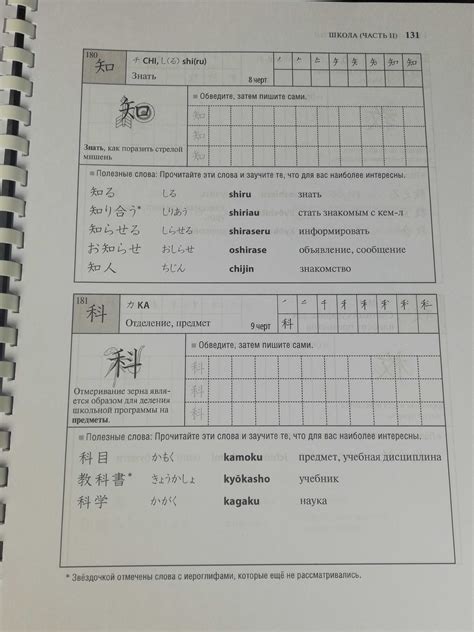 ШКОЛА (ЧАСТЬ II) 131
180
知
チ CHI, し(る) shi(ru)
Знать
8 черт
■ Обведите, затем пишите сами.
知
知
知
知
Знать, как поразить стрелой
мишень
■ Полезные слова: Прочитайте эти слова и заучите те, что для вас наиболее интересны.
知る しる shiru знать
知り合う* しりあう shiriau стать знакомым с кем-л
知らせる しらせる shiraseru информировать
お知らせ おしらせ oshirase объявление, сообщение
知人 ちじん chijin знакомство
181
科
カ KA
Отделение, предмет
9 черт
科
■ Обведите, затем пишите сами.
科
科
科
科
Отмеривание зерна явля-
ется образом для деления
школьной программы на
предметы.
■ Полезные слова: Прочитайте эти слова и заучите те, что для вас наиболее интересны.
科目 かもく kamoku предмет, учебная дисциплина
教科書* きょうかしょ kyōkasho учебник
科学 かがく kagaku наука
* Звёздочкой отмечены слова с иероглифами, которые ещё не рассматривались.